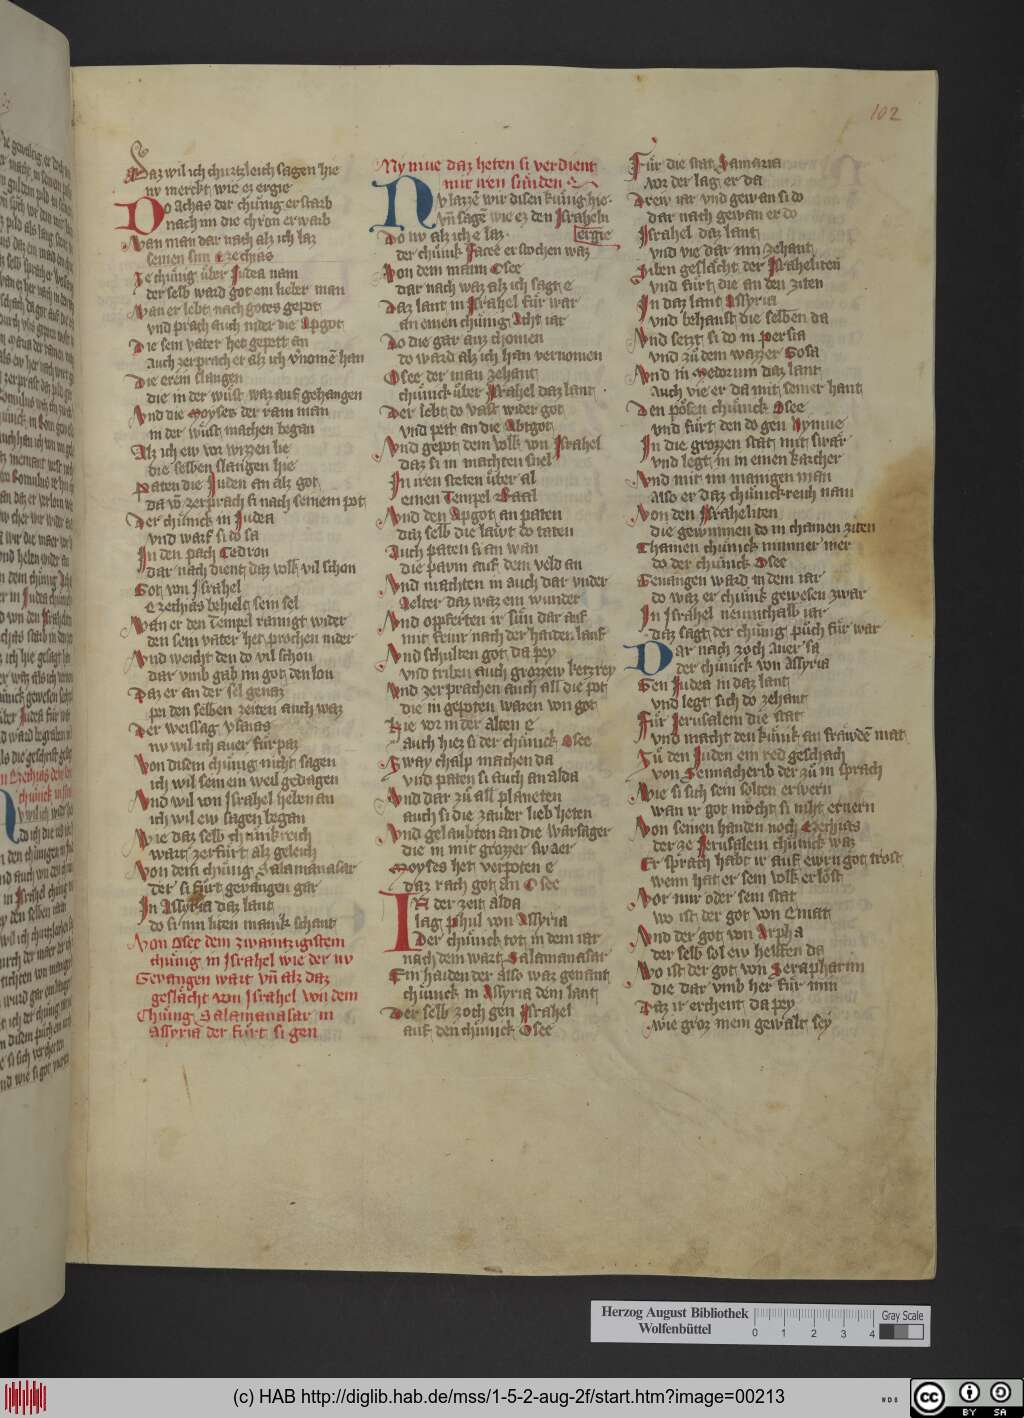 102
Daz wil ich churtzleich sagen hie
nv merckt wie ez ergie
Do achas der chu̇nig erstarb
nach im die chron erwarb
Wan man dar nach alz ich laz
seinen sun Ezechias
Ze chu̇nig u̇ber Judea nam
der selb ward got ein lieber man
Wan er lebt nach gotes gepot
vnd prach auch nider die Apgot
Die sein vater het gepett an
auch zerprach er alz ich v̄nomē han
Die erein slangen
die in der wu̇st waz auf gehangen
Vnd die Moyses der rain man
in der wu̇st machen began
Alz ich ew vor wizzen lie
die selben slangen hie
Paten die Juden an alz got
da vō zerprach si nach seinem pot
Der chu̇nick in Judea
vnd warf si do sa
In den pach Cedron
dar nach dient daz volk vil schon
Got von Israhel
Ezechias behielt sein sel
Wan er den Tempel rainigt wider
den sein vater het prochen nider
Vnd weicht den do vil schon
dar vmb gab im got den lon
Daz er an der sel genaz
pei den selben zeiten auch waz
Der weissag ysaias
nv wil ich auer fu̇rpaz
Von disem chu̇nig nicht sagen
ich wil sein ein weil gedagen
Vnd wil von Israhel heben an
ich wil ew sagen began
Wie daz selb chu̇nikreich
wart zerfu̇rt alz geleich
Von dem chu̇nig Salamanasar
der si fu̇rt gevangen gar
In Assyria daz lant
do si im liten manik schant
Von Osee dem zwaintzigistem
chu̇nig in Israhel wie der nv
Gevangen wart vn̄ alz daz
geslächt von Israhel von dem
Chu̇nig Salamanasar in
Assyria der fu̇rt si gen
Nynnue daz heten si verdient
mit iren su̇nden
Nv lazzē wir disen ku̇nig hie
Vn̄ sagē wie ez den Israheln
ergie
Do nv alz ich e laz
der chu̇nik Facee erstochen waz
Von dem mann Osee
dar nach waz alz ich sagt e
Daz lant in Israhel fu̇r war
an einen chu̇nig Acht iar
Do die gar auz chomen
do ward alz ich han vernomen
Osee der man zehant
chu̇nick u̇ber Israhel daz lant
Der lebt do vast wider got
vnd pett an die Abtgot
Vnd gepot dem volk von Israhel
daz si in machten snel
In iren steten u̇ber al
einen Tempel Baal
Vnd den Apgot an paten
daz selb die la̍wt do taten
Auch paten si an wan
die pavm auf dem veld an
Vnd machten in auch dar vnder
Aelter daz waz ein wunder
Vnd opfferten ir su̇n dar auf
mit feur nach der haiden lauf
Vnd schulten got da pey
vnd triben auch grozzew ketzrey
Vnd zerprachen auch all die pot
die in gepoten waren von got
Hie vor in der alten e
auch hiez si der chu̇nick Osee
Sway chalp machen da
vnd paten si auch an alda
Vnd dar zu̇ all planeten
auch si die zauber lieb heten
Vnd gelaubten an die warsager
die in mit grozzer swaer
Moyses het verpoten e
daz rach got an Osee
In der zeit alda
lag phul von Assyria
Der chu̇nick tot in dem iar
nach dem wart Salamanasar
Ein haiden der also waz genant
chu̇nick in Assyria dem lant
Der selb zoch gen Israhel
auf den chu̇nick Osee
Fu̇r die stat Samaria
vor der lag er da
Drew iar vnd gewan si do
dar nach gewan er do
Israhel daz lant
vnd vie dar inn zehant
Siben geslächt der Israheliten
vnd fu̇rt die an den ziten
In daz lant Assyria
vnd behaust die selben da
Vnd setzt si do in persia
vnd zu̇ dem wazzer Gosa
Vnd in Medorum daz lant
auch vie er da mit seiner hant
Den po̍sen chu̇nick Osee
vnd fu̇rt den do gen Nynnue
In die grozzen stat mit swär
vnd legt in in einen karcher
Vnd mit im manigen man
also er daz chu̇nickreich nam
Von den Israheliten
die gewunnen do in chainen ziten
Chainen chu̇nick nimmer mer
do der chu̇nick Osee
Gevangen ward in dem iar
do waz er chu̇nik gewesen zwar
In Israhel nevnthalb iar
daz sagt der chu̇nig pu̇ch fu̇r war
Dar nach zoch Auer sa
der chu̇nick von Assyria
Gen Judea in daz lant
vnd legt sich do zehant
Fu̇r Jerusalem die stat
vnd macht den ku̇nik an frawdē mat
Zu̇ den Juden ein red geschach
von Sennacherib der zu̇ in sprach
Wie si sich sein solten erwern
wan ir got mo̍cht si niht ernern
Von seinen handen noch Ezechias
der ze Jerusalem chu̇nick waz
Er sprach habt ir auf ewrn got trost
wenn hat er sein volk erlo̍st
Vor mir oder sein stat
wo ist der got von Ematt
Vnd der got von Arpha
der selb sol ew helffen da
Wo ist der got von Seraphaim
die dar vmb her fu̇r mim
Daz ir erchent da pey
wie groz mein gewalt sey
Herzog August Bibliothek
Wolfenbüttel
0 1 2 3 4
Gray Scale
(c) HAB http://diglib.hab.de/mss/1-5-2-aug-2f/start.htm?image=00213
WDB
cc BY SA